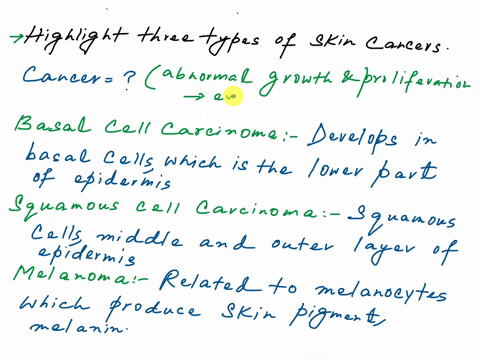 → Highlight three types of Skin Cancers.
Cancer = ? (abnormal growth & proliferation
→ e
Basal Cell Carcinoma:- Develops in
basal cells, which is the lower part
of epidermis
Squamous cell Carcinoma:- Squamous
Cells, middle and outer layer of
epidermis
Melanoma:- Related to melanocytes
which produce skin pigment,
melanin.